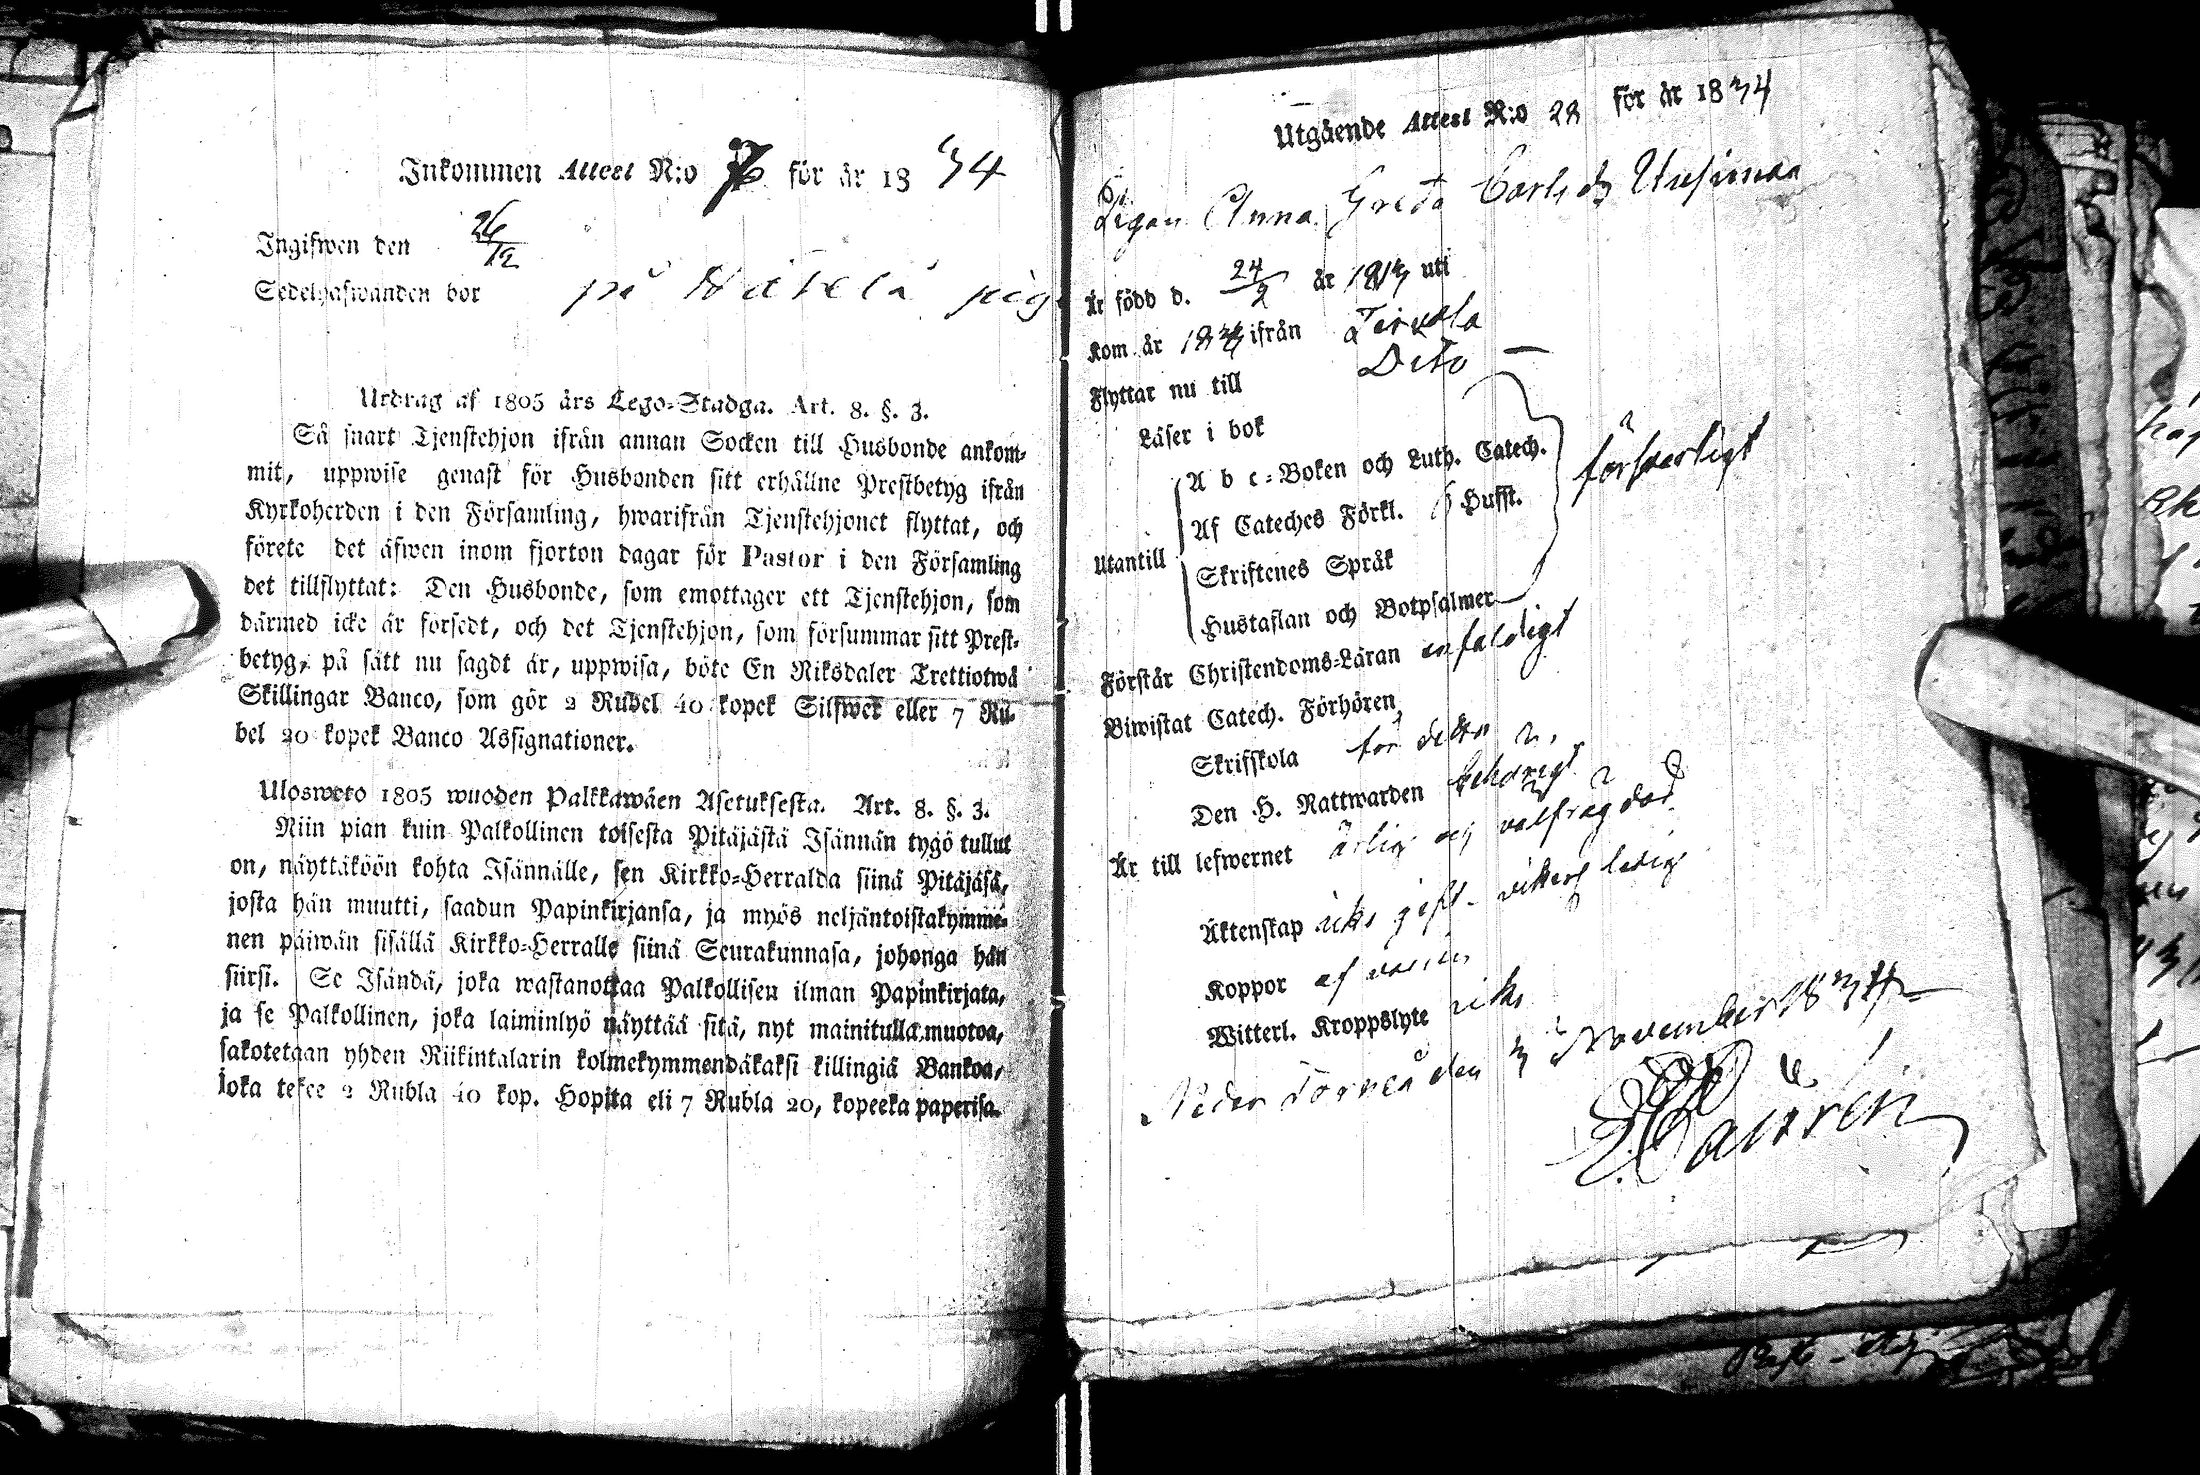 Inkommen Attest N:o 76 för år 1834
Ingifwen den 26/12
Sedelhafwanden bor på
Utdrag af 1805 års Lego-Stadga. Art. 8. §. 3.
Så snart Tjenstehjon ifrån annan Socken till Husbonde ankom-
mit, uppwise genast för Husbonden sitt erhållne Prestbetyg ifrån
Kyrkoherden i den Församling, hwarifrån Tjenstehjonet flyttat, och
förete det äfwen inom fjorton dagar för Pastor i den Församling
det tillflyttat: Den Husbonde, som emottager ett Tjenstehjon, som
därmed icke är försedt, och det Tjenstehjon, som försummar sitt Prest-
betyg, på sätt nu sagdt är, uppwisa, böte En Riksdaler Trettiotwå
Skillingar Banco, som gör 2 Rubel 40 kopek Silfwer eller 7 Ru-
bel 20 kopek Banco Assignationer.
Ulosweto 1805 wuoden Palkkawäen Asetuksesta. Art. 8. §. 3.
Niin pian kuin Palkollinen toisesta Pitäjästä Isännän tygö tullut
on, näyttäköön kohta Isännälle, sen Kirkko-Herralda siinä Pitäjäsä,
josta hän muutti, saadun Papinkirjansa, ja myös neljäntoistakymme-
nen päiwän sisällä Kirkko-Herralle siinä Seurakunnasa, johonga hän
siirsi. Se Isändä, joka wastanottaa Palkollisen ilman Papinkirjata,
ja se Palkollinen, joka laiminlyö näyttää sitä, nyt mainitulla muotoa,
sakotetaan yhden Riikintalarin kolmekymmendäkaksi killingiä Bankoa,
joka tekee 2 Rubla 40 kop. Hopita eli 7 Rubla 20, kopeeka paperisa.
Utgående Attest N:o 28 för år 1834
Pigan Anna Greta Carlsdr Uusimaa
Är född d. 24/2 år 1817 uti
Kom år 1834 ifrån Tervola
Flyttar nu till Dito
Läser i bok
A b c-Boken och Luth. Catech.
Af Cateches Förkl. Husst.
försvarligt
Utantill
Skriftenes Språk
Hustaflan och Botpsalmer
Förstår Christendoms-Läran enfaldigt
Biwistat Catech. Förhören
Skrifskola för detta
Den H. Nattwarden behörigt
Är till lefwernet ärlig och välfrägdad
Äktenskap icke gift - eller ledig
Koppor af
Witterl. Kroppslyte icke
Neder Torneå den 3 November 1834